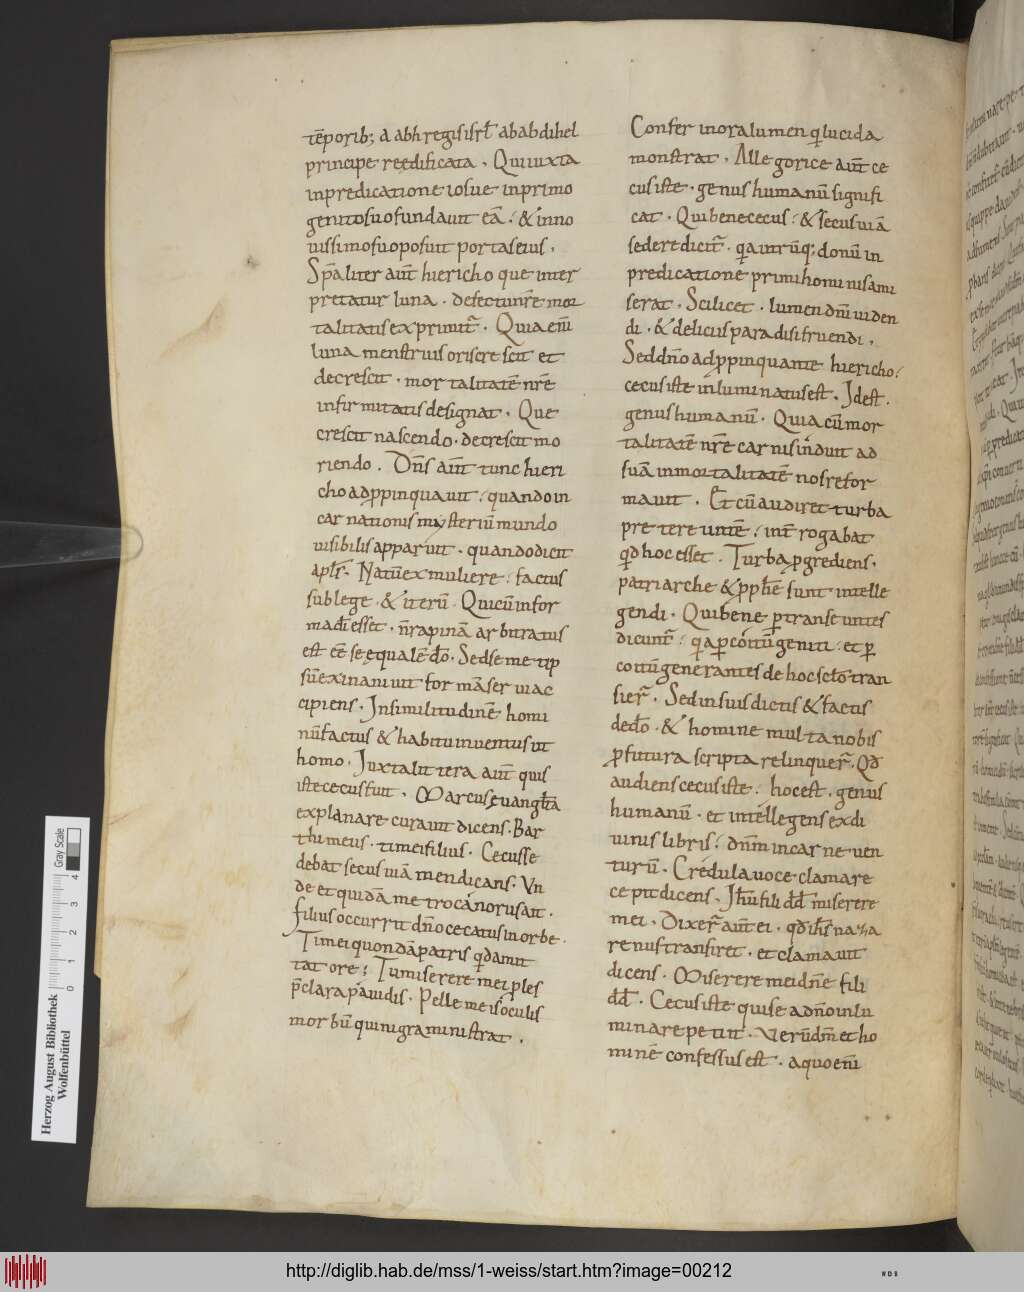 tēporib; a abh regis isrł ab ab dihel
principe reędificata . Qui iuxta
inpredicatione iosue inprimo
genitosuo fundauit eā . & inno
uissimosuo posuit portas eius .
Sp̄aliter aūt hiericho que inter
pretatur luna . defectun r̄e mor
talitatis exprimit̄ . Quia eni
luna menstruis oris crescit et
decrescit . mortalitatē nr̄e
infirmitatis designat . Que
crescit nascendo . decrescit mo
riendo . Dn̄s aūt tunc hieri
cho adp̱pinquauit . quando in
carnationis mysteriū mundo
uisibilis apparuit . quando dicit
apłs . Natū ex muliere . factus
sub lege . & iterū . Qui cū in for
ma di esset . n̄ rapinā arbitratus
est eē se ęqualē dō . Sed se metip
sū exinaniuit formā serui ac
cipiens . In similitudinē homi
nū factus & habitu inuentus ut
homo . Iuxta littera aūt quis
iste cecus fuit . Marcus euangłta
explanare curauit dicens . Bar
thimeus . timei filius . Cecus se
debat secus uiā mendicans . Vn
de et quidā metrocanorus ait .
Filius occurrit dn̄o cecatus in orbe .
Timei quondā patris qd̄am
tat ore ; Tu miserere mei ples
p̄clara pauidis . Pelle meis oculis
morbū qui nigra ministrat .
Confer inora lumen q̄ lucida
monstrat . Allegorice aūt ce
cus iste . genus humanū signifi
cat . Qui bene cecus . & secus uiā
sedere dicit̄ . qa utrūq; donū in
predicatione primi hominis ami
serat . Scilicet . lumen dn̄m uiden
di . & deliciis paradisi fruendi .
Sed dn̄o adp̱pinquante hiericho .
cecus iste inluminatus est . Idest .
genus humanū . Quia cū mor
talitatē nr̄e carnis induit ad
suā inmortalitatē nos refor
mauit . Et cū audiret turba
pretereuntē . int̄rogabat
qd hoc esset . Turba p̱grediens .
patriarche & p̱phe sunt intelle
gendi . Qui bene p̱transeuntes
dicunt̄ . qa p̱ coitū geniti . et p̱
coitū generantes de hoc scło tran
sier̄ . Sed in suis dictis & factis
de dō . & homine multa nobis
p̱futura scripta relinquer̄ . Qd
audiens cecus iste . hoc est . genus
humanū . et intellegens ex di
uinis libris . dn̄m incarne uen
turū . Credula uoce clamare
cepit dicens . Ihu fili dd̄ miserere
mei . Dixer̄ aūt ei . qd ihs naza
renus transiret . et clamauit
dicens . Miserere mei dn̄e fili
dd̄ . Cecus iste qui se a dn̄o inlu
minare petiit . Verū dm̄ et ho
minē confessus est . a quo eni
http://diglib.hab.de/mss/1-weiss/start.htm?image=00212
Herzog August Bibliothek
Wolfenbüttel
Gray Scale
0 1 2 3 4